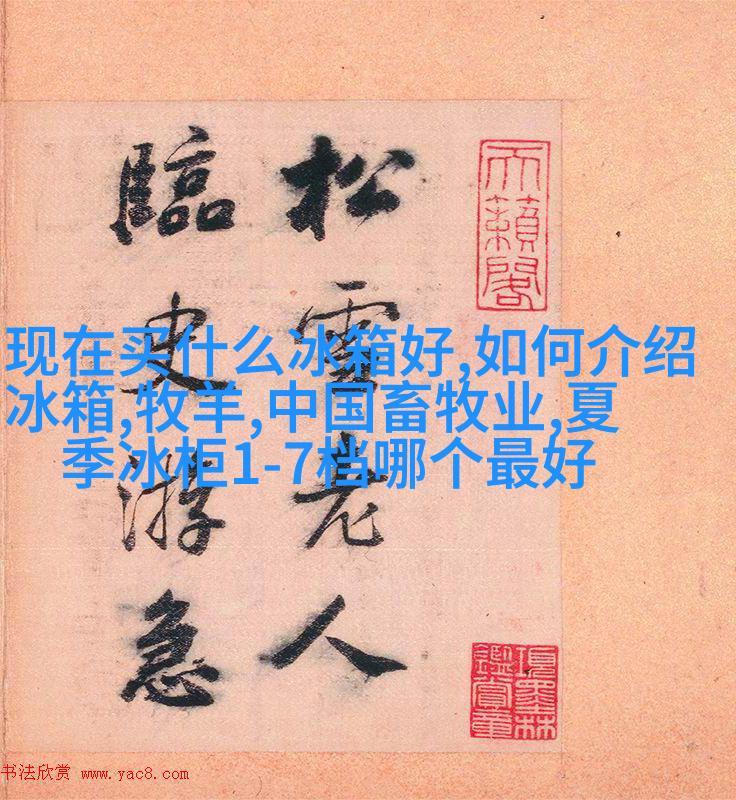 天籟閣
松雪老人
臨史游急
现在买什么冰箱好,如何介绍
冰箱,牧羊,中国畜牧业,夏
季冰柜1-7档哪个最好
項墨林
鑑賞章
书法欣赏 www.yac8.com